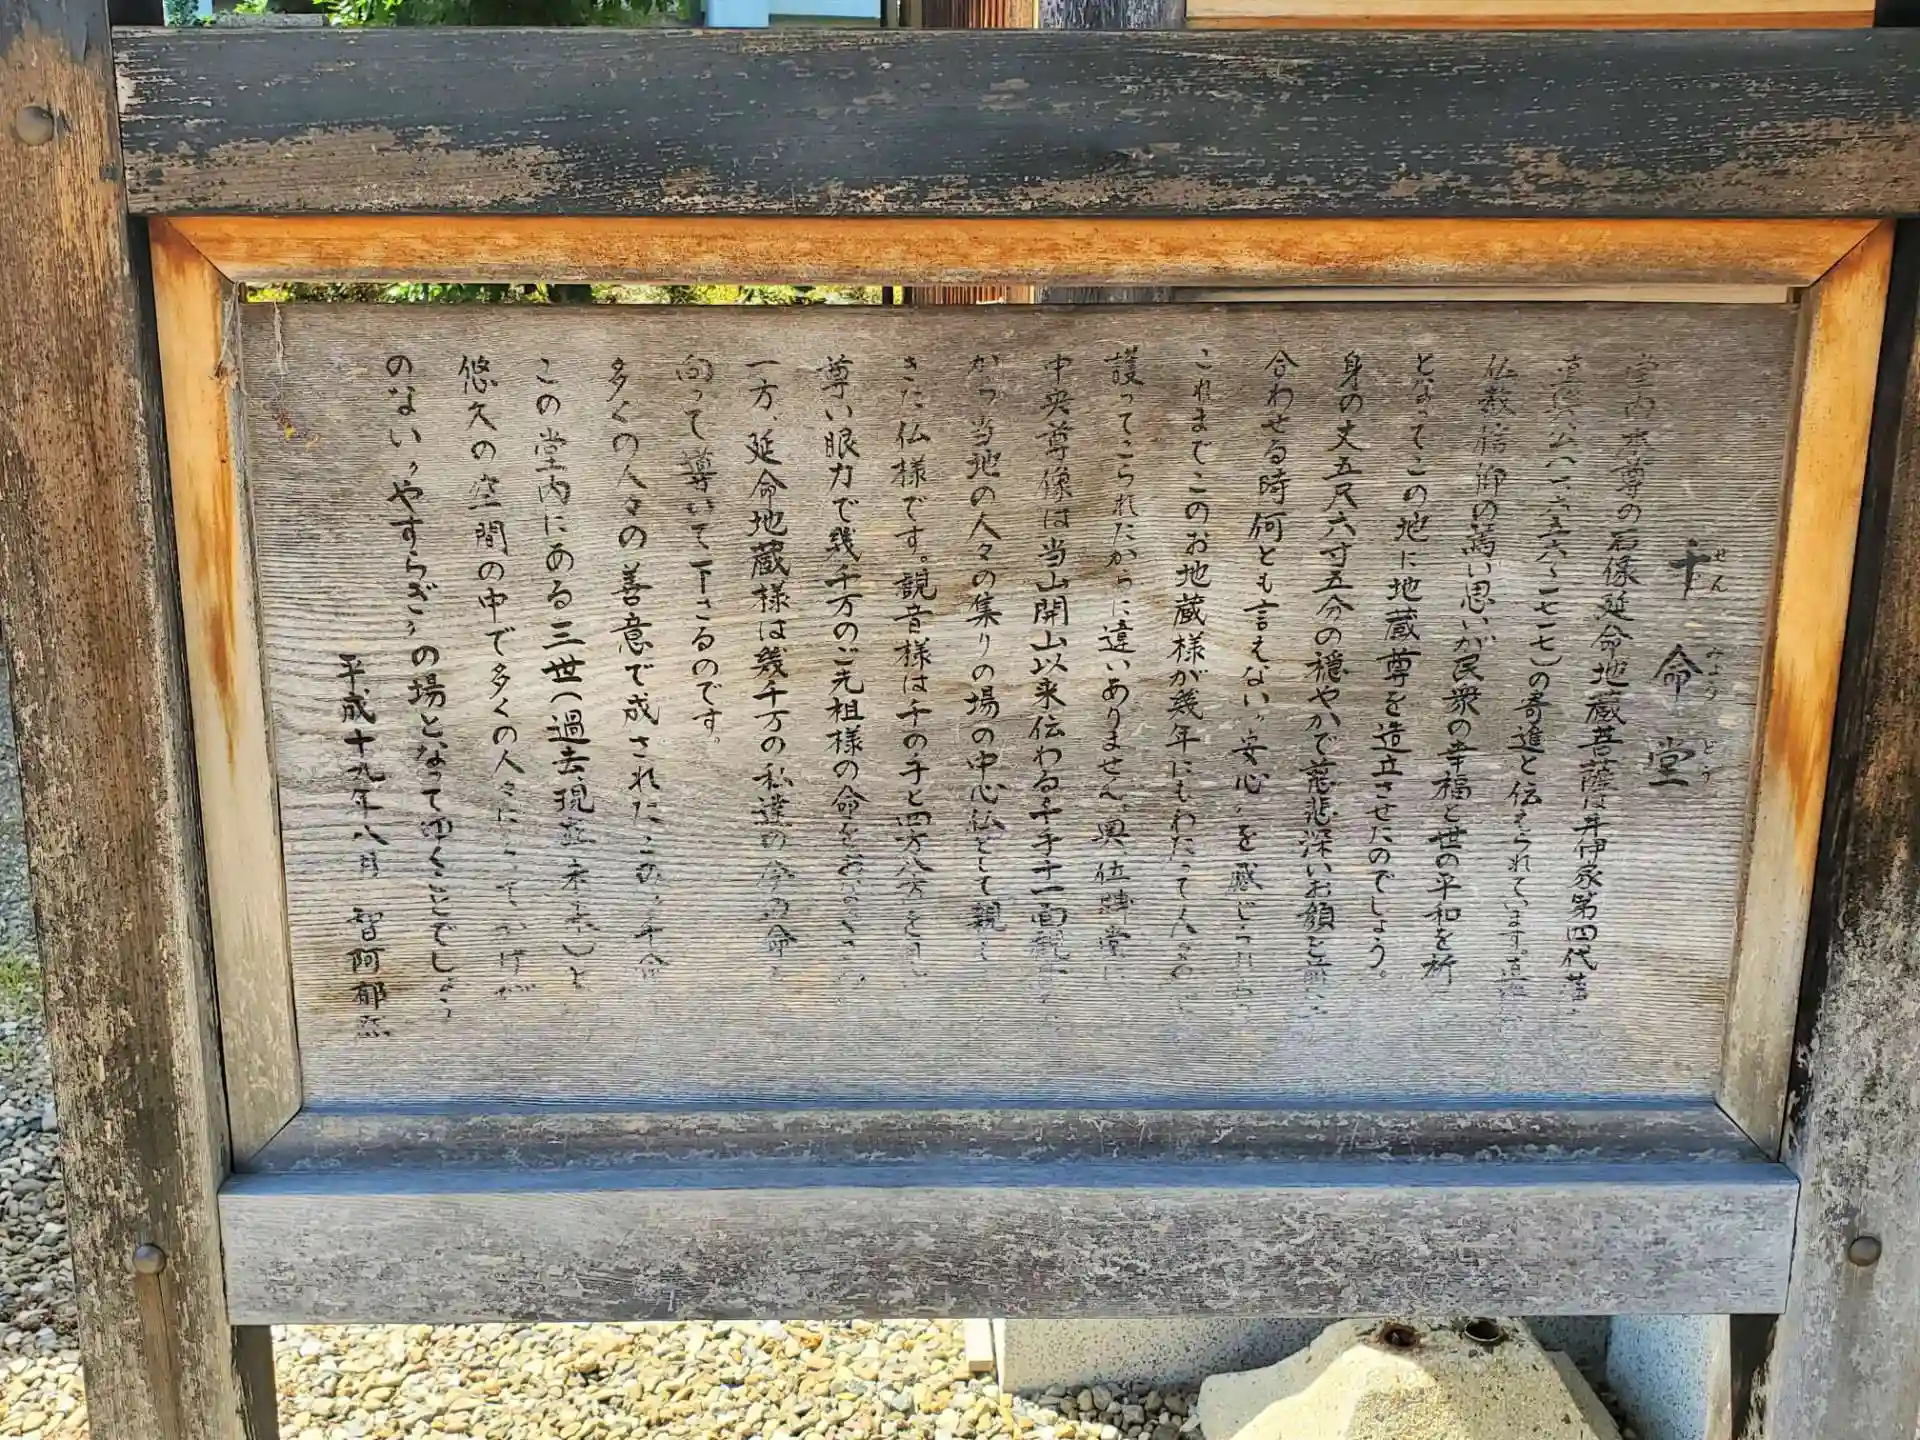 千命堂
せんみょうどう
堂内本尊の石像延命地蔵菩薩は井伊家第四代藩
直興公(一六五六~一七一七)の寄進と伝えられています。直
仏教信仰の篤い思いが民衆の幸福と世の平和を祈
となってこの地に地蔵尊を造立させたのでしょう。
身の丈五尺六寸五分の穏やかで慈悲深いお顔と
合わせる時何とも言えない〝安心〟を感じ
これまでこのお地蔵様が幾年にもわたって人々の
護ってこられたからに違いありません。奥位牌堂に
中央尊像は当山開山以来伝わる千手十一面観
かつ当地の人々の集りの場の中心仏として親し
きた仏様です。観音様は千の手と四方八方を
尊い眼力で幾千万のご先祖様の命を
一方、延命地蔵様は幾千万の私達の
向って導いて下さるのです。
多くの人々の善意で成されたこの〝千命
この堂内にある三世(過去、現在、未来)と
悠久の空間の中で多くの人々にとって
のない〝やすらぎ〟の場となってゆくことでしょう
平成十九年八月 智阿郁